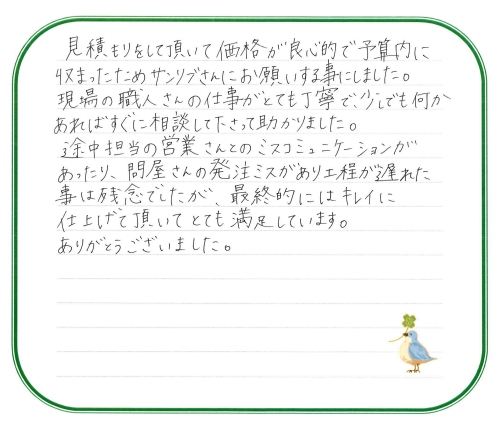 見積もりをして頂いて価格が良心的で予算内に
収まったためサンリブさんにお願いする事にしました。
現場の職人さんの仕事がとても丁寧で、少しでも何か
あればすぐに相談して下さって助かりました。
途中担当の営業さんとのミスコミュニケーションが
あったり、問屋さんの発注ミスがあり工程が遅れた
事は残念でしたが、最終的にはキレイに
仕上げて頂いてとても満足しています。
ありがとうございました。